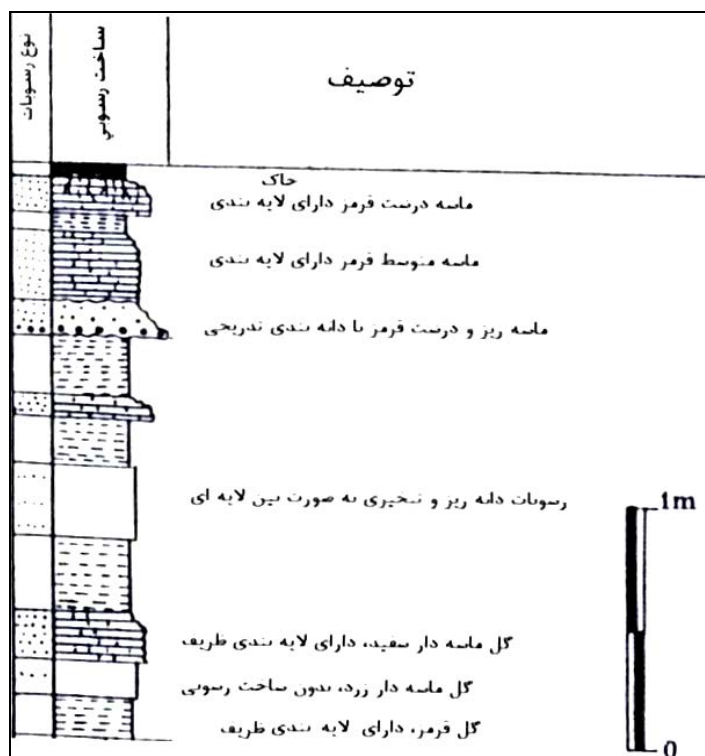 نوع رسوبات
ساخت رسوبی
توصیف
خاک
ماسه درشت قرمز دارای لایه بندی
ماسه متوسط قرمز دارای لایه بندی
ماسه ریز و درشت قرمز با دانه بندی تدریجی
رسوبات دانه ریز و تبخیری به صورت بین لایه ای
1m
گل ماسه دار سفید، دارای لایه بندی ظریف
گل ماسه دار زرد، بدون ساخت رسوبی
گل قرمز، دارای لایه بندی ظریف
0